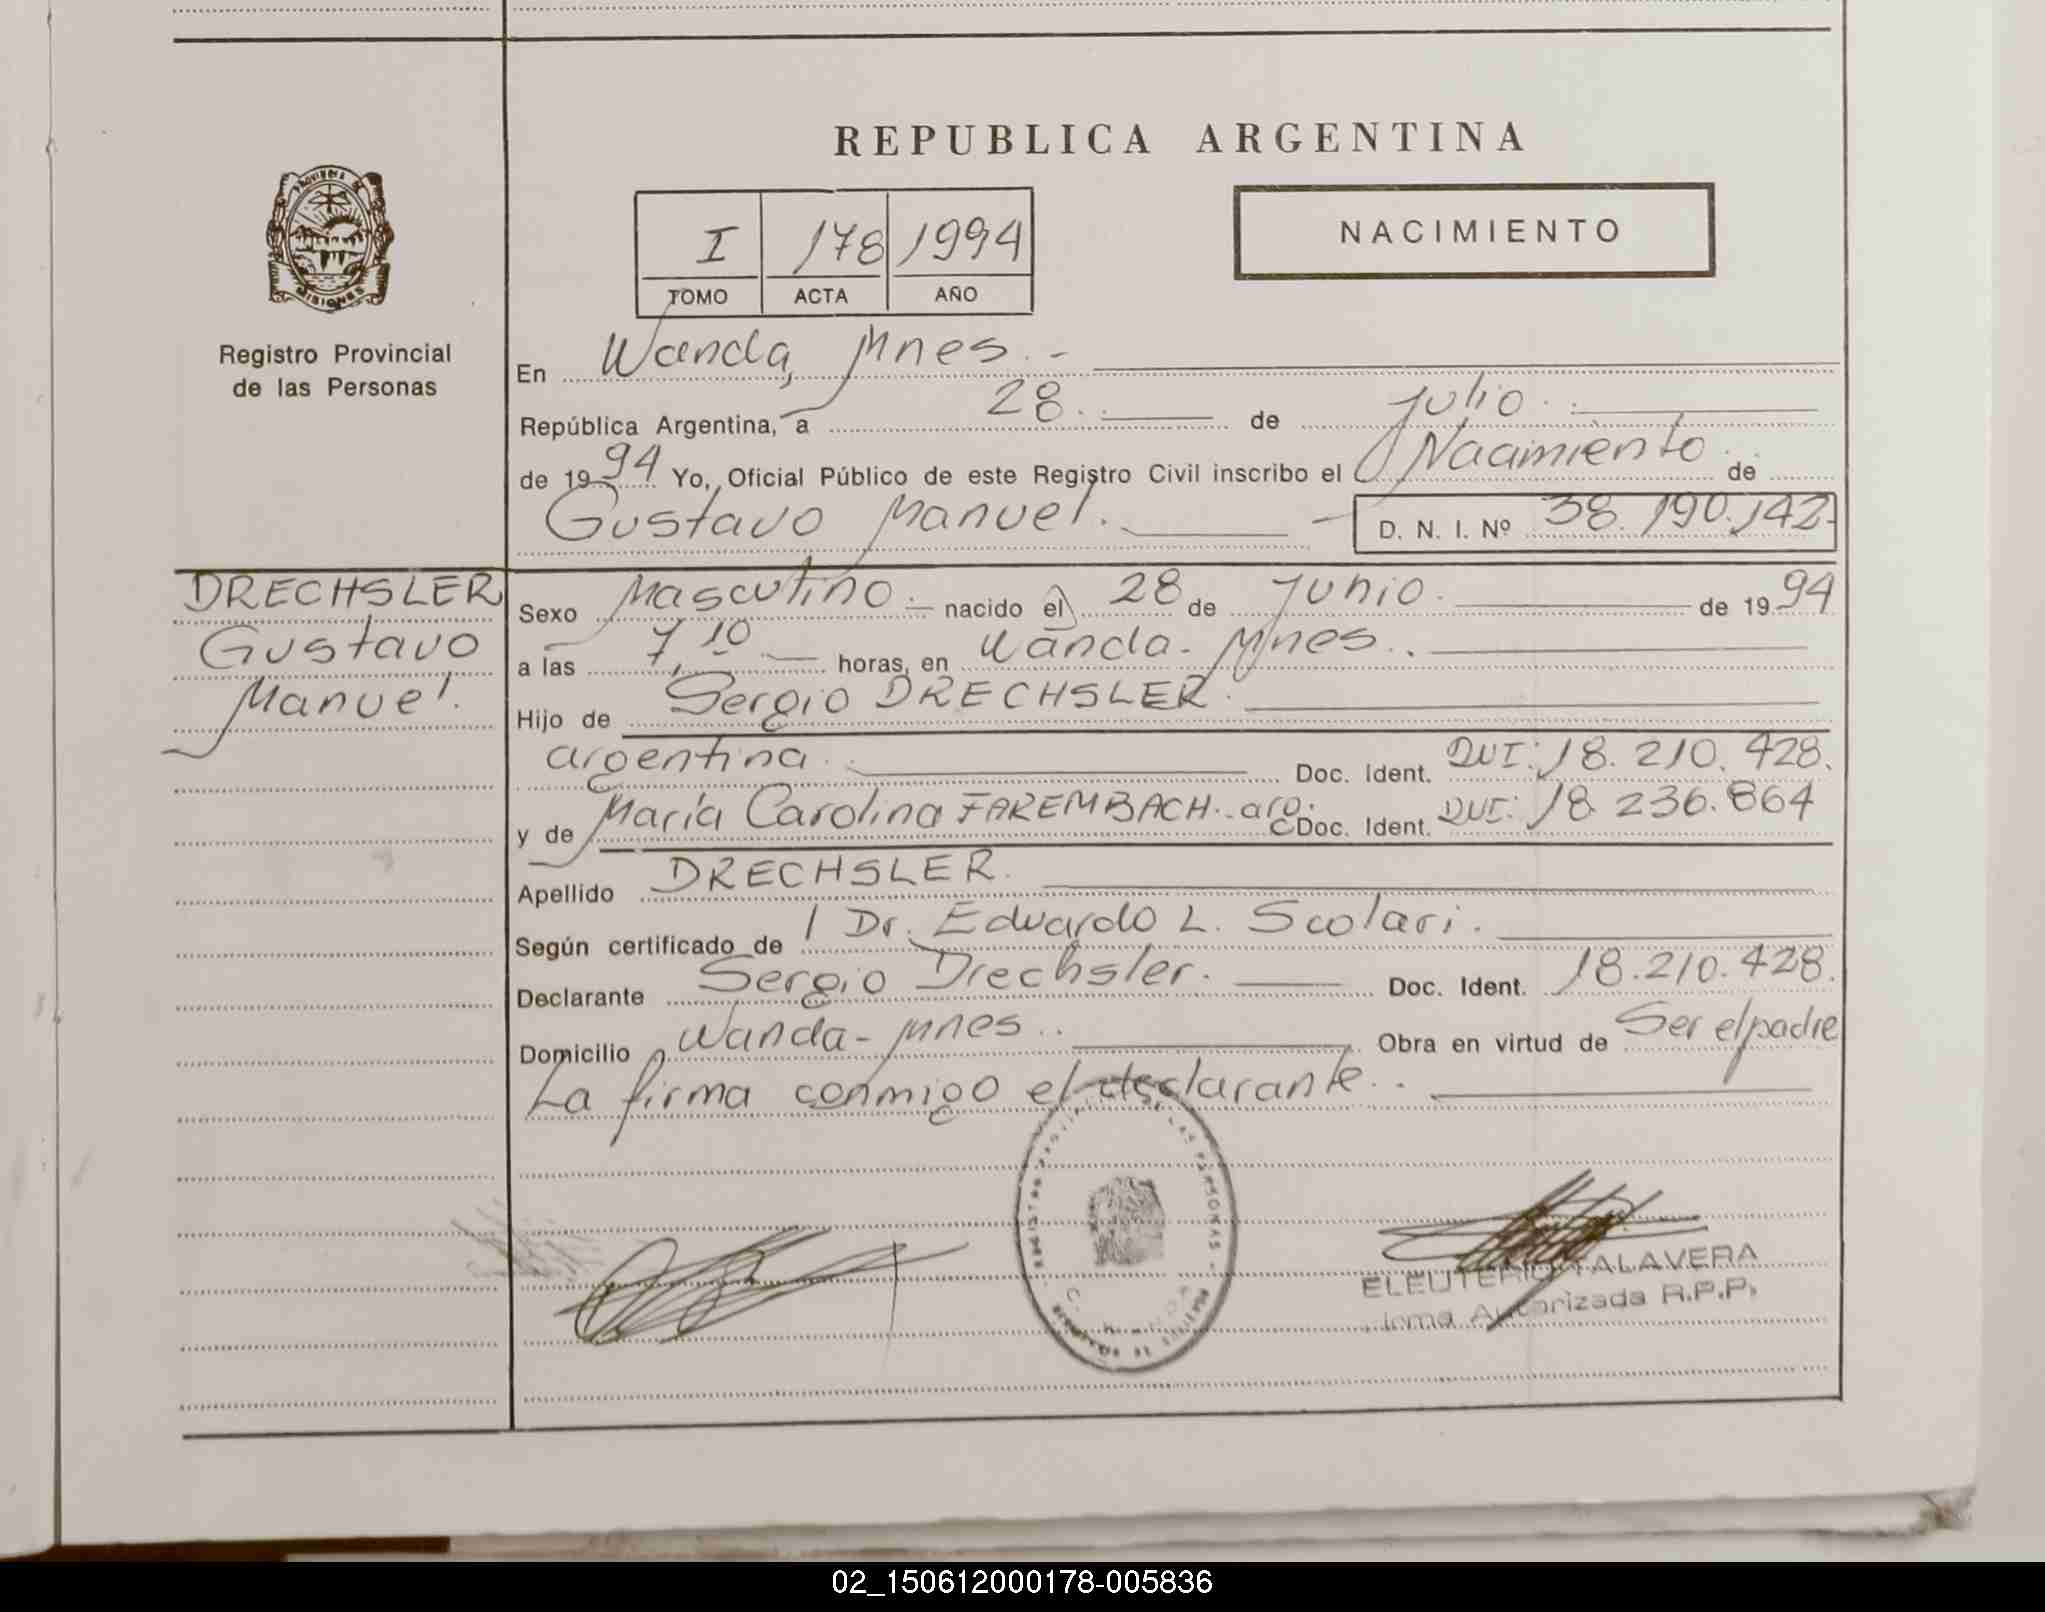 REPUBLICA ARGENTINA
PROVINCIA DE
MISIONES
Registro Provincial
de las Personas
I 178 1994
TOMO ACTA AÑO
NACIMIENTO
En Wanda, Mnes.-
República Argentina, a 28. de Julio.
de 1994 Yo, Oficial Público de este Registro Civil inscribo el Nacimiento. de
Gustavo Manuel. D. N. I. Nº 38.190.142-
DRECHSLER
Gustavo
Manuel.
Sexo Masculino. nacido el 28 de Junio. de 1994
a las 7,10 horas, en Wanda- Mnes..
Hijo de Sergio DRECHSLER.
argentina. Doc. Ident. DUI: 18.210.428.
y de María Carolina FAREMBACH.. arg. Doc. Ident. DUI: 18.236.864
Apellido DRECHSLER.
Según certificado de Dr. Eduardo L. Scolari.
Declarante Sergio Drechsler. Doc. Ident. 18.210.428.
Domicilio Wanda- Mnes.. Obra en virtud de Ser el padre
La firma conmigo el declarante..
LAS PERSONAS
ELEUTERIO TALAVERA
Firma Autorizada R.P.P.
02_150612000178-005836